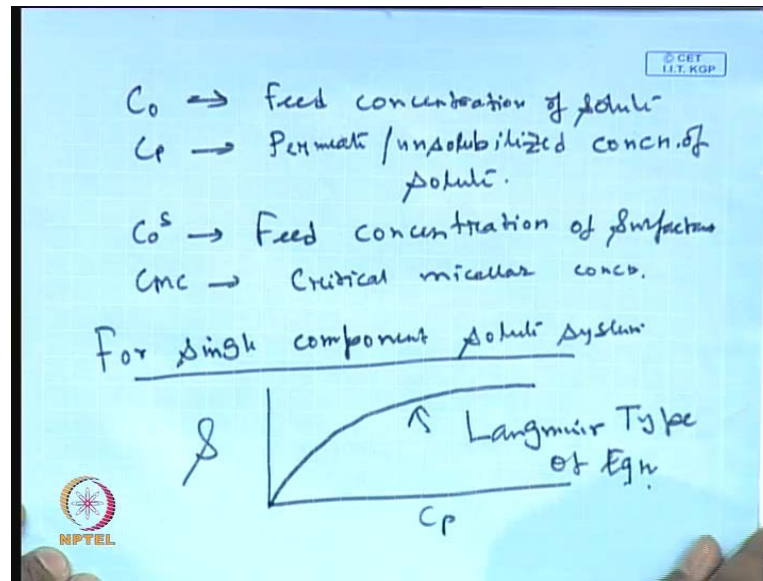 © CET
I.I.T. KGP
C₀ → Feed concentration of solute
Cp → Permeate / unsolubilized concn. of
solute.
C₀ˢ → Feed concentration of Surfactant
CMC → Critical micellar concn.
For single component solute system
S
Langmuir Type
of Eqn.
Cp
NPTEL